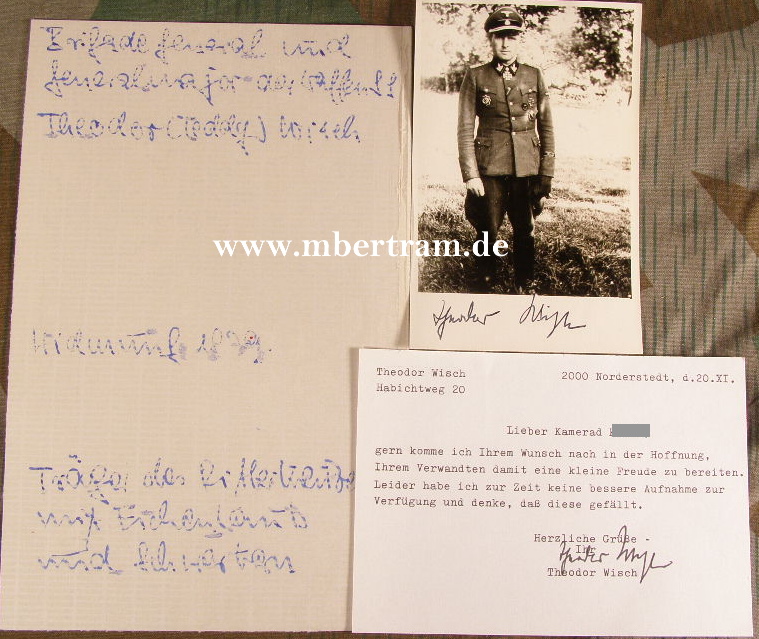 Brigadegeneral und
Generalmajor der Waffen SS
Theodor (Teddy) Wisch
www.mbertram.de
Theodor Wisch
Widmung 1979.
Theodor Wisch
Habichtweg 20
2000 Norderstedt, d.20.XI.
Lieber Kamerad
gern komme ich Ihrem Wunsch nach in der Hoffnung,
Ihrem Verwandten damit eine kleine Freude zu bereiten.
Leider habe ich zur Zeit keine bessere Aufnahme zur
Verfügung und denke, daß diese gefällt.
Herzliche Grüße -
Ihr
Theodor Wisch
Theodor Wisch
Träger des Ritterkreuzes
mit Eichenlaub
und Schwerten